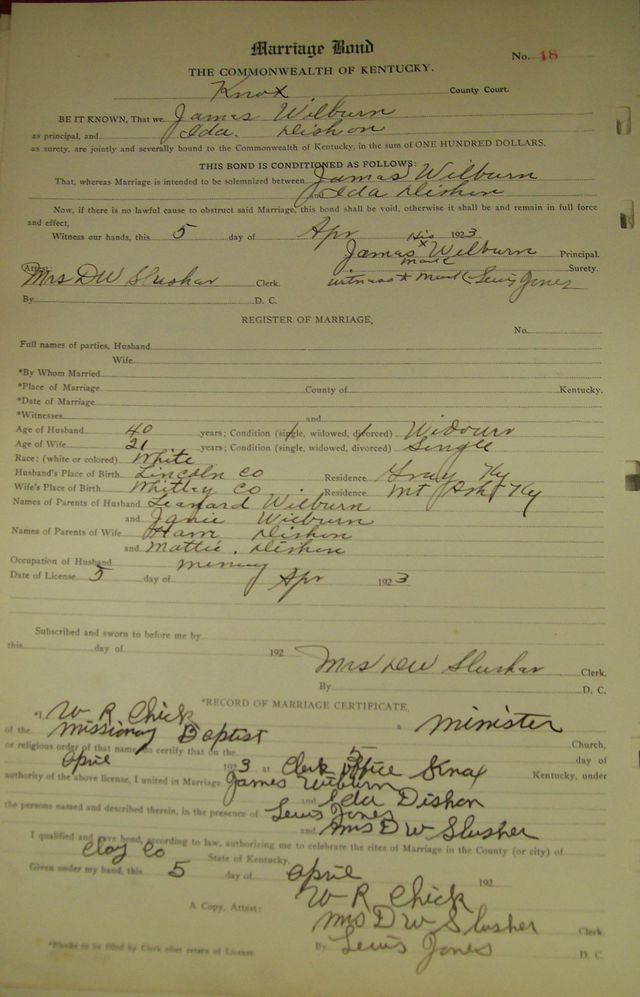 Marriage Bond
No. 18
THE COMMONWEALTH OF KENTUCKY.
Knox County Court.
BE IT KNOWN, That we James Wilburn
as principal, and Ida. Dishon
as surety, are jointly and severally bound to the Commonwealth of Kentucky, in the sum of ONE HUNDRED DOLLARS.
THIS BOND IS CONDITIONED AS FOLLOWS:
That, whereas Marriage is intended to be solemnized between James Wilburn
and Ida Dishon
Now, if there is no lawful cause to obstruct said Marriage, this bond shall be void, otherwise it shall be and remain in full force
and effect,
Witness our hands, this 5 day of Apr 1923
His
James x Wilburn Principal.
Mark
Attest: Surety.
Mrs D W Slusher Clerk. witness to Mark Lewis Jones
By D. C.
REGISTER OF MARRIAGE,
No.
Full names of parties, Husband
Wife
*By Whom Married
*Place of Marriage County of Kentucky.
*Date of Marriage
*Witnesses and
Age of Husband 40 years; Condition (single, widowed, divorced) Widowr
Age of Wife 21 years; Condition (single, widowed, divorced) Single
Race: (white or colored) White
Husband's Place of Birth Lincoln Co Residence Gray Ky
Wife's Place of Birth Whitley Co. Residence Mt Ky
Names of Parents of Husband Leanard Wilburn
and Janie Wilburn
Names of Parents of Wife Dishon
and Mattie. Dishon
Occupation of Husband mining
Date of License 5 day of Apr 1923
Subscribed and sworn to before me by
this day of 192
Mrs D W Slusher Clerk.
By D. C.
*RECORD OF MARRIAGE CERTIFICATE,
*I, W R Chick a minister
of the Missionary Baptist Church,
or religious order of that name, do certify that on the 5 day of
April 1923 at Clerk office Knox Kentucky, under
authority of the above license, I united in Marriage James Wilburn
and Ida Dishon
the persons named and described therein, in the presence of Lewis Jones
and Mrs D W Slusher
I qualified and gave bond, according to law, authorizing me to celebrate the rites of Marriage in the County (or city) of
Clay Co State of Kentucky.
Given under my hand, this 5 day of April 192
W R Chick
A Copy, Attest: Mrs D W Slusher Clerk.
By Lewis Jones D. C.
*Blanks to be filled by Clerk after return of License.